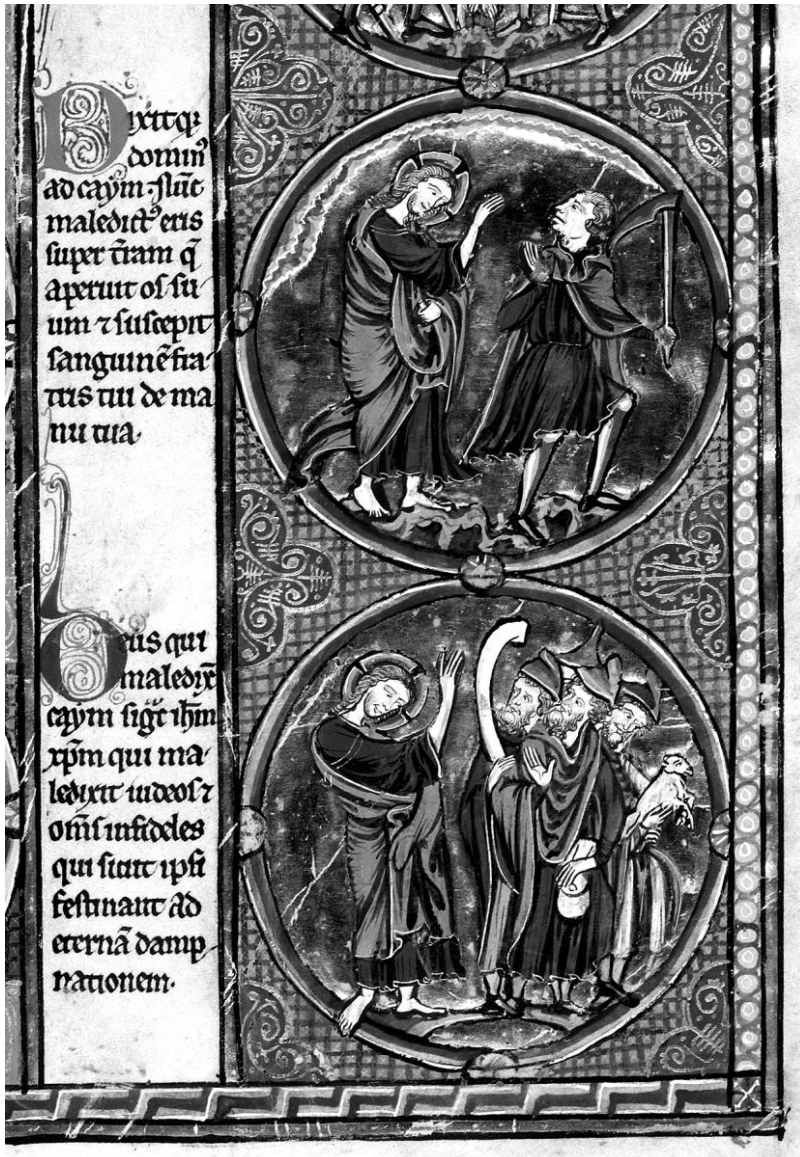 Dixitqȝ
domin᷒
ad caym· Nūc
maledict᷒ eris
super t̄ram q̄
aperuit os su
um ⁊ suscepit
sanguinē fra
tris tui de ma
nu tua·
Deus qui
maledix̄
caym sigͭ ihm̄
xp̄m qui ma
ledixit iudeos ⁊
om̄s infideles
qui sicut ipsi
festinant ad
eternā damp
nationem·